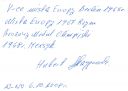 V-ce mistrz Europy Berlin 1965r.
Mistrz Europy 1967 Rzym
Brązowy Medal Olimpijski
1968r. Meksyk
Hubert Skrzypczak